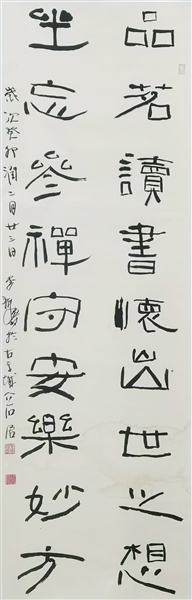 品茗讀書懷出世之想
坐忘參禪守安樂妙方
歲次癸卯潤二月廿三日